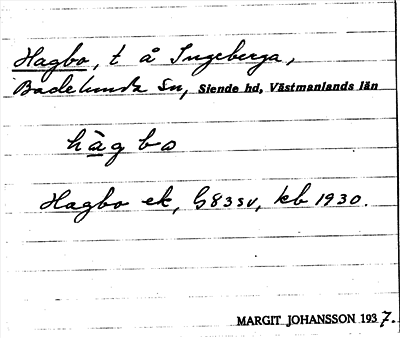 Hagbo, t å Ingeberga,
Badelunda Sn, Siende hd, Västmanlands län
hàgbo
Hagbo ek, G83sv, kb 1930.
MARGIT JOHANSSON 1937.